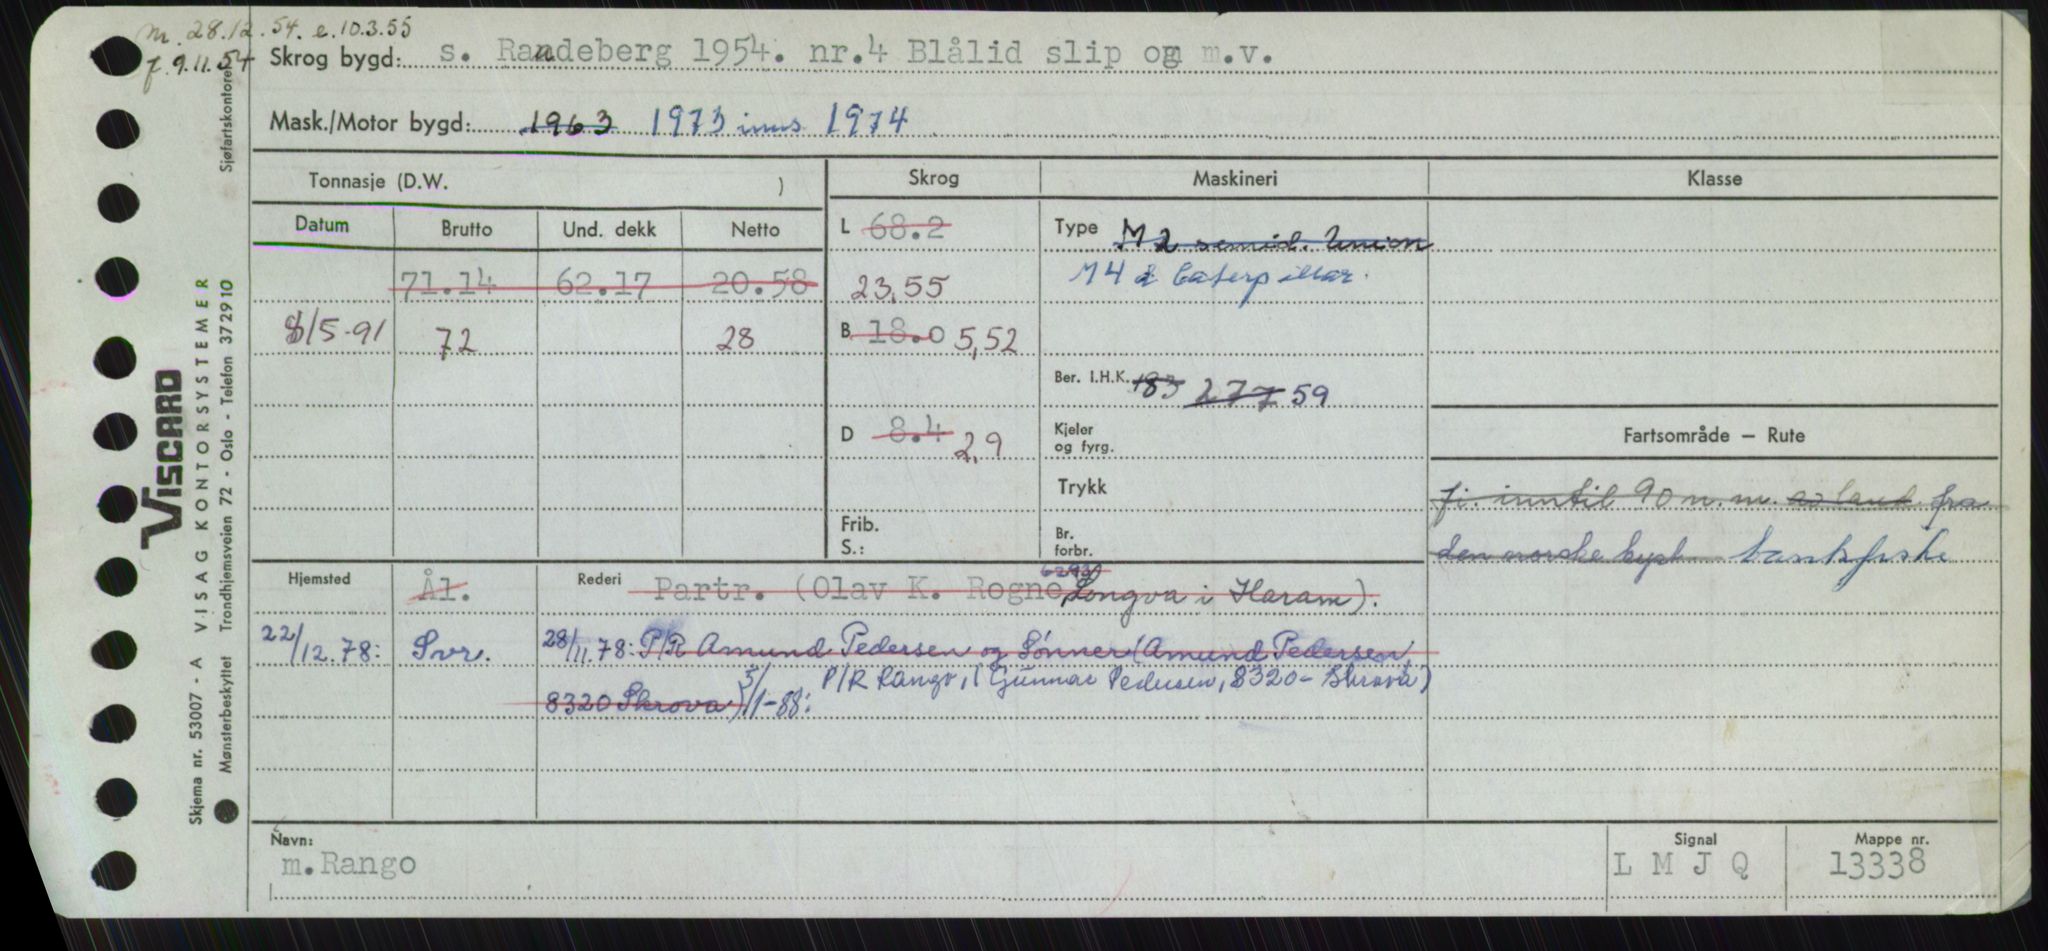 m. 28.12.54. e. 10.3.55
f. 9.11.54
Skrog bygd: s. Randeberg 1954. nr.4 Blålid slip og m.v.
Mask./Motor bygd: 1963 1973 inns 1974
Tonnasje (D.W. )
Skrog
Maskineri
Klasse
Datum
Brutto
Und. dekk
Netto
L 68.2
Type M 2 semid. Union
71.14 62.17 20.58
23,55
M 4 d Caterpillar.
8/5-91 72 28
B 18.0 5,52
Ber. I.H.K. 183 277 59
D 8.4 2,9
Kjeler
og fyrg.
Fartsområde — Rute
Trykk
fi. inntil 90 n. m. av land fra
Frib.
S.:
Br.
forbr.
den norske kyst bankfiske
Hjemsted Ål.
Rederi Partr. (Olav K. Rogne, 6293 Longva i Haram).
22/12.78: Svr.
28/11.78: P/R Amund Pedersen og Sønner (Amund Pedersen,
8320 Skrova) 5/1-88: P/R Rango, (Gunnar Pedersen, 8320- Skrova)
Navn:
m.Rango
Signal
L M J Q
Mappe nr.
13338
Sjøfartskontoret
VISCARD
Skjema nr. 53007 - A VISAG KONTORSYSTEMER
Mønsterbeskyttet Trondhjemsveien 72 - Oslo - Telefon 372910